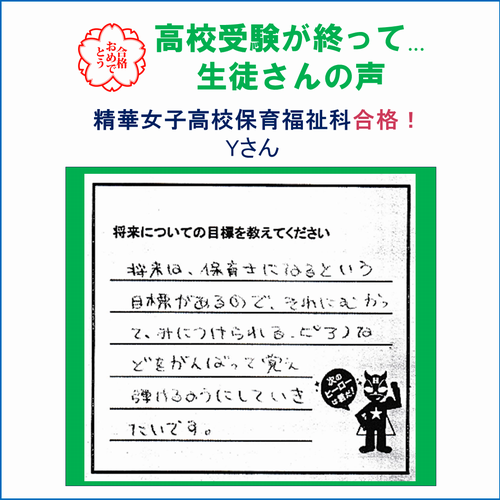 合格
おめで
とう
高校受験が終って…
生徒さんの声
精華女子高校保育福祉科合格！
Yさん
将来についての目標を教えてください
将来は、保育士になるという
目標があるので、それにむかっ
て、みにつけられる、ピアノな
どをがんばって覚え
弾けるようにしていき
たいです。
次の
ヒーロー
は君だ！
H